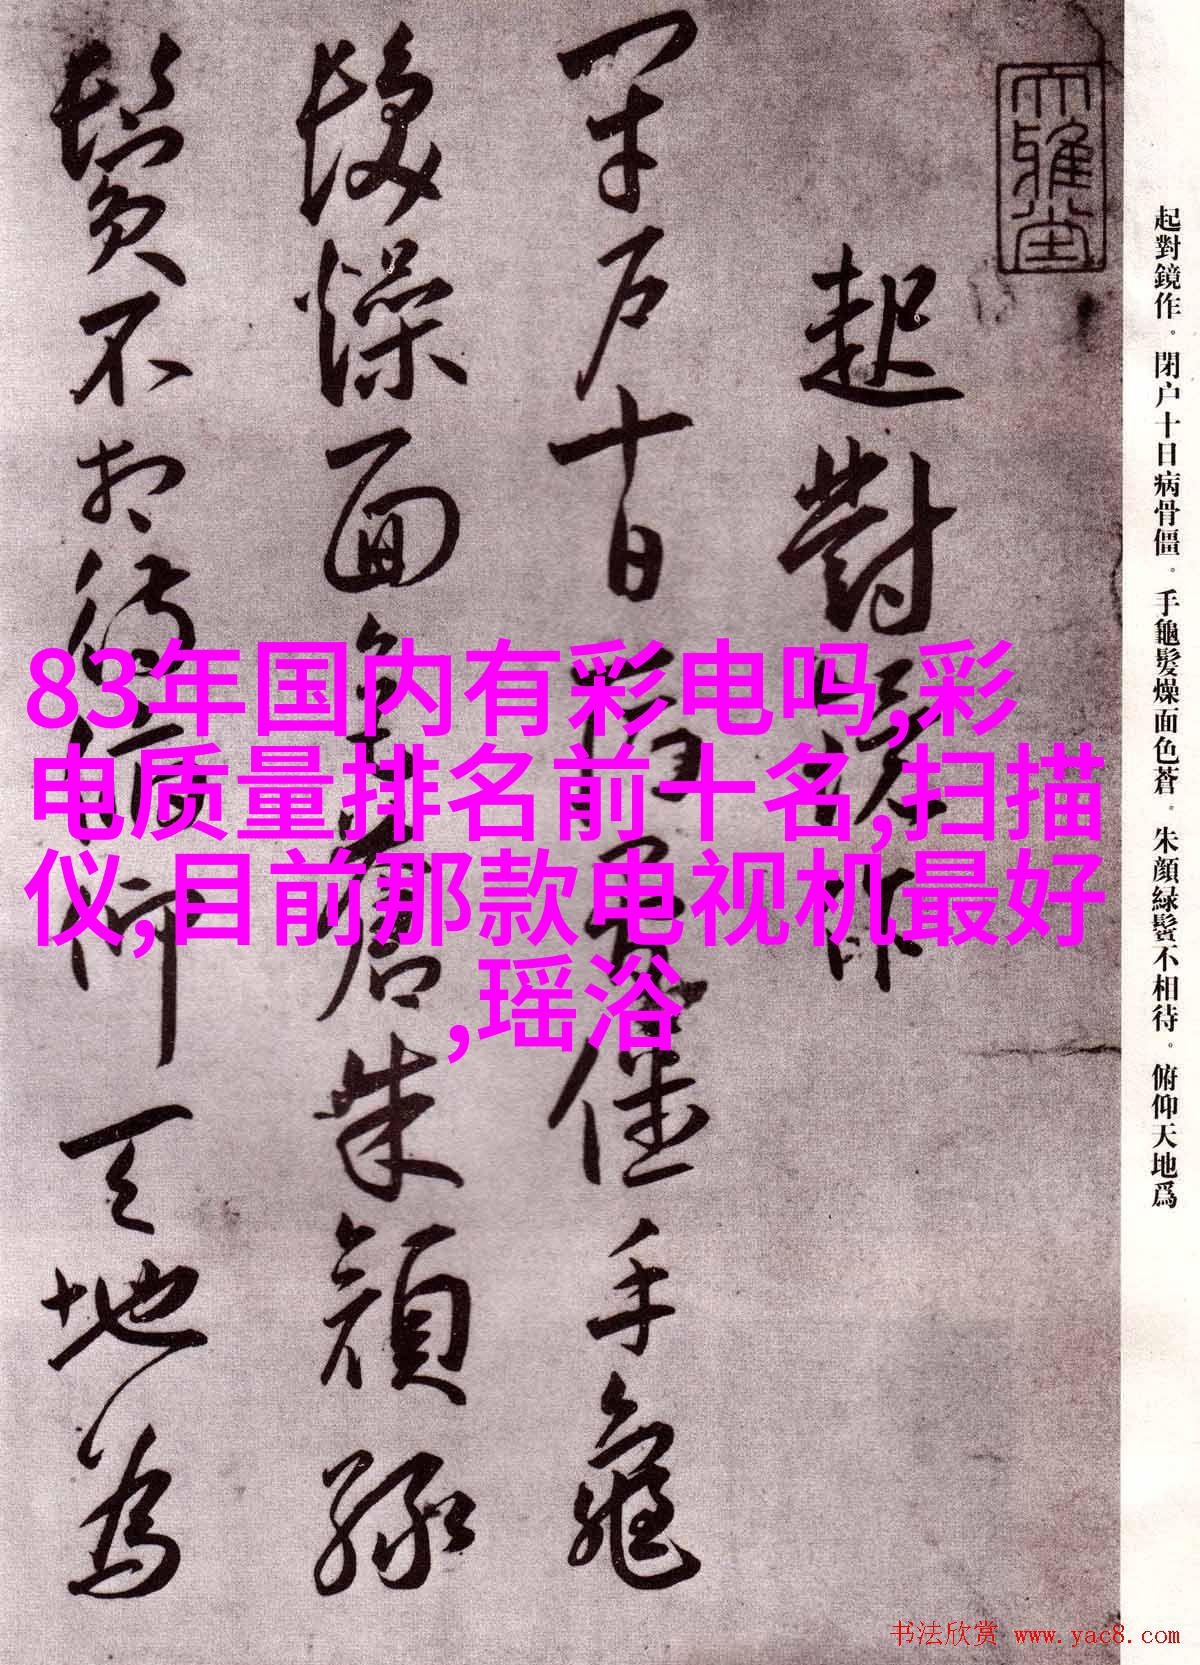 大雅堂
起對鏡作
閉户十日病骨僵手龜
髮燥面色蒼朱顔緑
鬢不相待俯仰天地為
起對鏡作。閉户十日病骨僵。手龜髮燥面色蒼。朱顔緑鬢不相待。俯仰天地爲
83年国内有彩电吗,彩
电质量排名前十名,扫描
仪,目前那款电视机最好
,瑶浴
书法欣赏 www.yac8.com